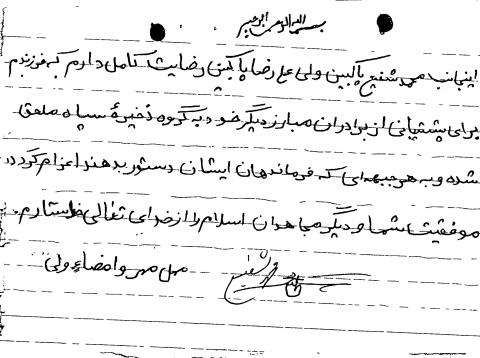 بسم الله الرحمن الرحیم
اینجانب محمد شفیع پاکبین ولی علیرضا پاکبین رضایت کامل دارم که فرزندم
برای پشتیبانی از برادران مبارز دیگر خود به گروه ذخیرهٔ سپاه ملحق
شده و به هر جبهه‌ای که فرماندهان ایشان دستور بدهند اعزام گردد
موفقیت شما و دیگر مجاهدان اسلام را از خدای تعالی خواستارم.
محل مهر و امضاء ولی